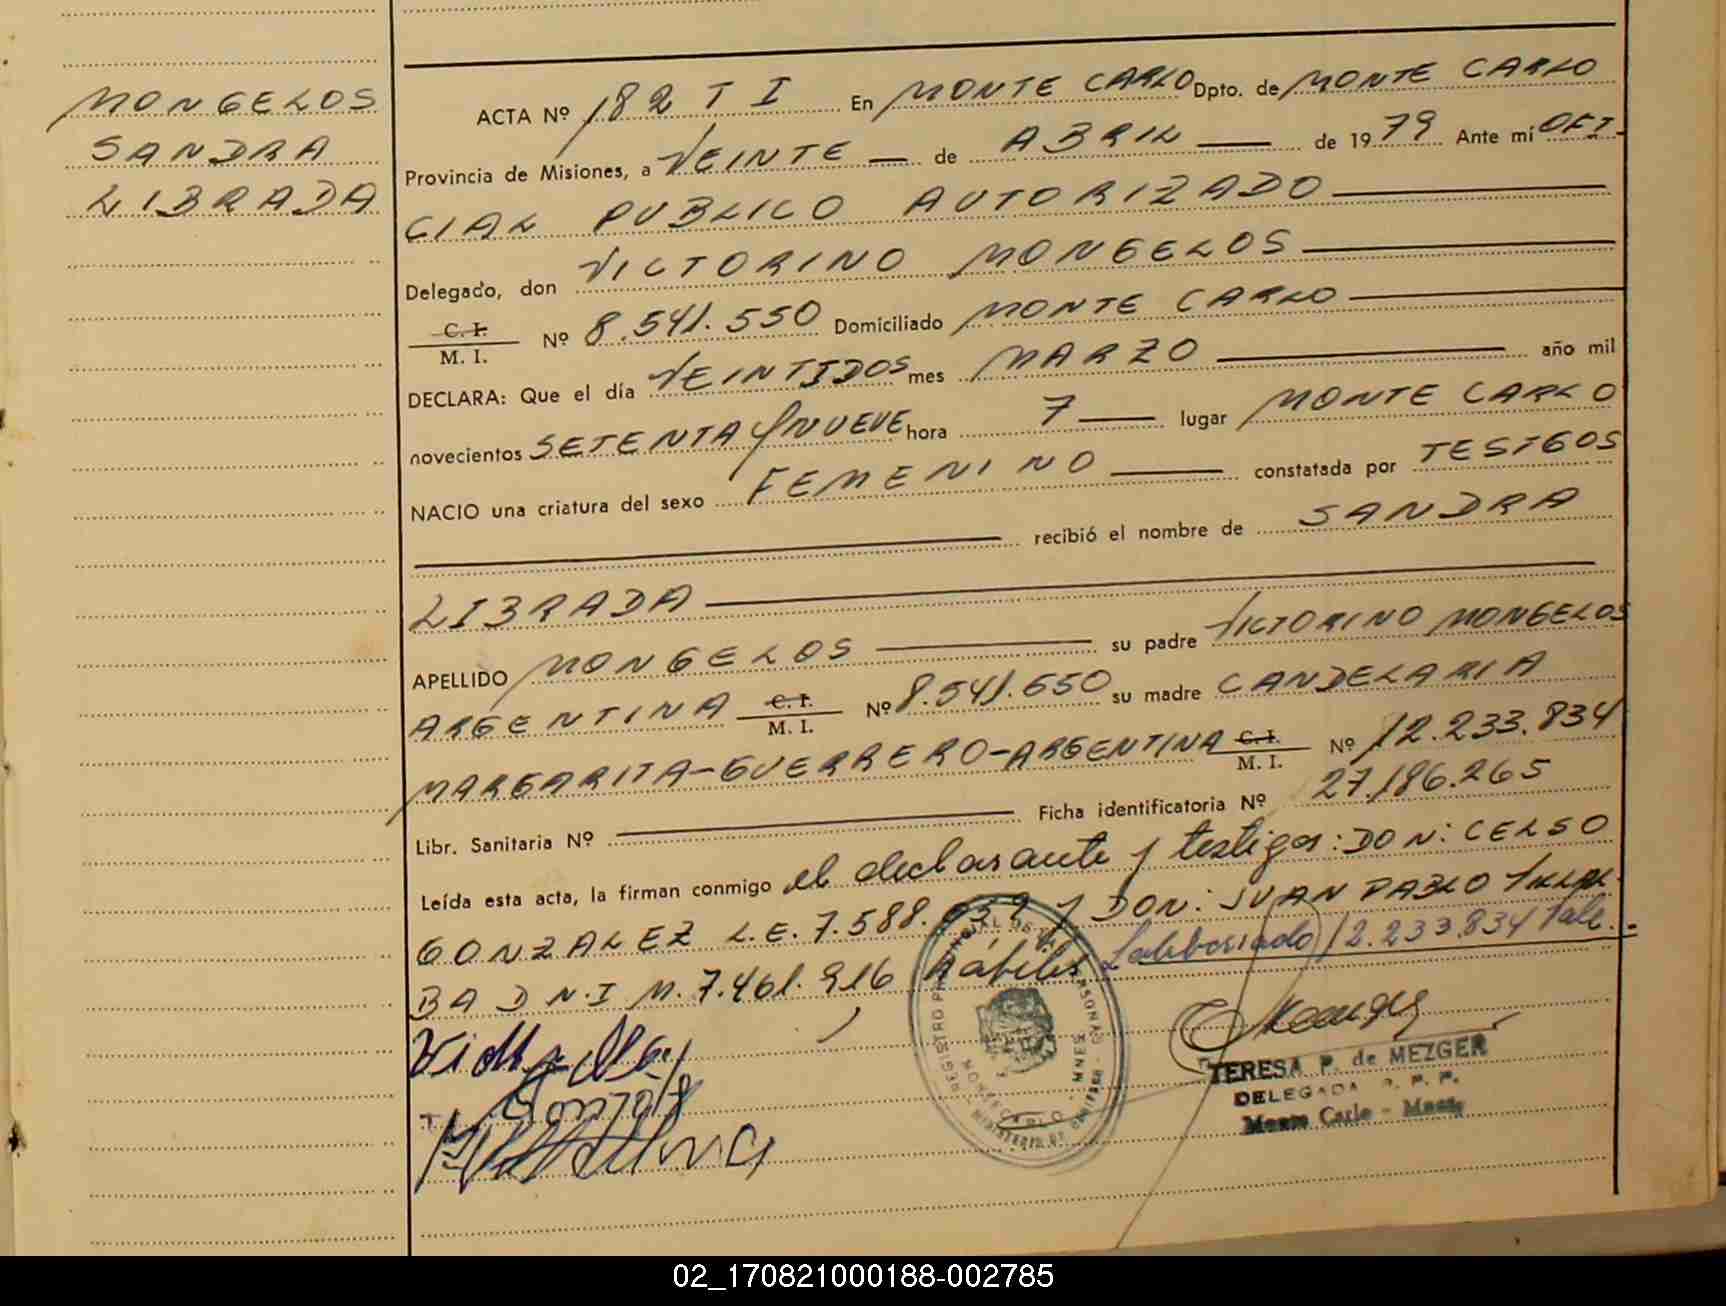 MONGELOS
SANDRA
LIBRADA
ACTA Nº 182 T I En MONTE CARLO Dpto. de MONTE CARLO
Provincia de Misiones, a VEINTE — de ABRIL — de 1979 Ante mí OFI-
CIAL PUBLICO AUTORIZADO
Delegado, don VICTORINO MONGELOS
C. I.
M. I. Nº 8.541.550 Domiciliado MONTE CARLO
DECLARA: Que el día VEINTIDOS mes MARZO año mil
novecientos SETENTA Y NUEVE hora 7 — lugar MONTE CARLO
NACIO una criatura del sexo FEMENINO — constatada por TESTIGOS
recibió el nombre de SANDRA
LIBRADA
APELLIDO MONGELOS su padre VICTORINO MONGELOS
ARGENTINA C. I. M. I. Nº 8.541.650 su madre CANDELARIA
MARGARITA-GUERRERO-ARGENTINA C. I. M. I. Nº 12.233.834
Libr. Sanitaria Nº Ficha identificatoria Nº 27.186.265
Leída esta acta, la firman conmigo el declarante y testigos: DON: CELSO
GONZALEZ L.E. 7.588. y DON: JUAN PABLO VILLAL-
BA D N.I M. 7.461.916 hábiles 12.233.834 Vale.
REGISTRO PROVINCIAL DE LAS PERSONAS
MONTECARLO - MNES
MINISTERIO DE GOBIERNO
TERESA P. de MEZGER
DELEGADA R. P. P.
Monte Carlo - Mnes.
02_170821000188-002785